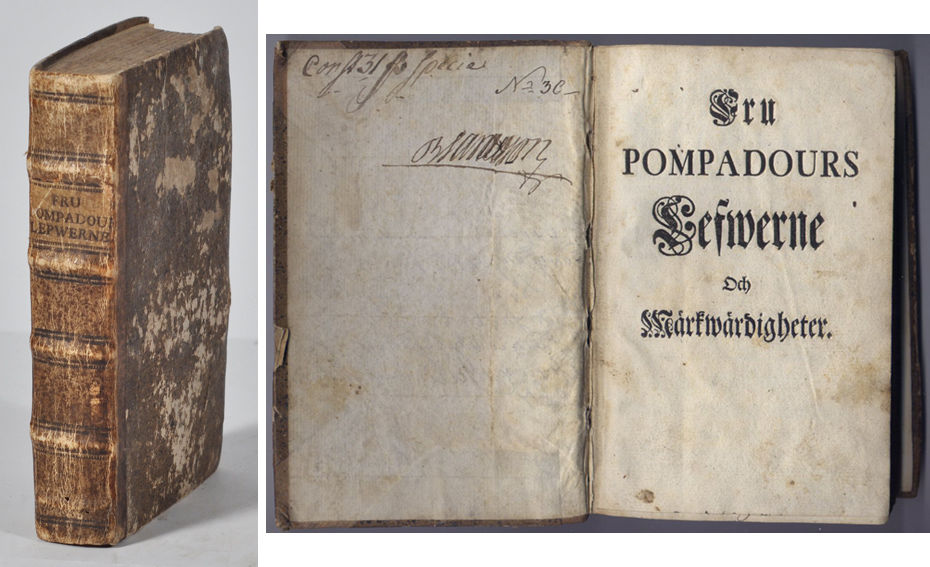 FRU
OMPADOU
LEPWERNE
Const 31 ß specie
No 30
Fru
POMPADOURS
Lefwerne
Och
Märkwärdigheter.